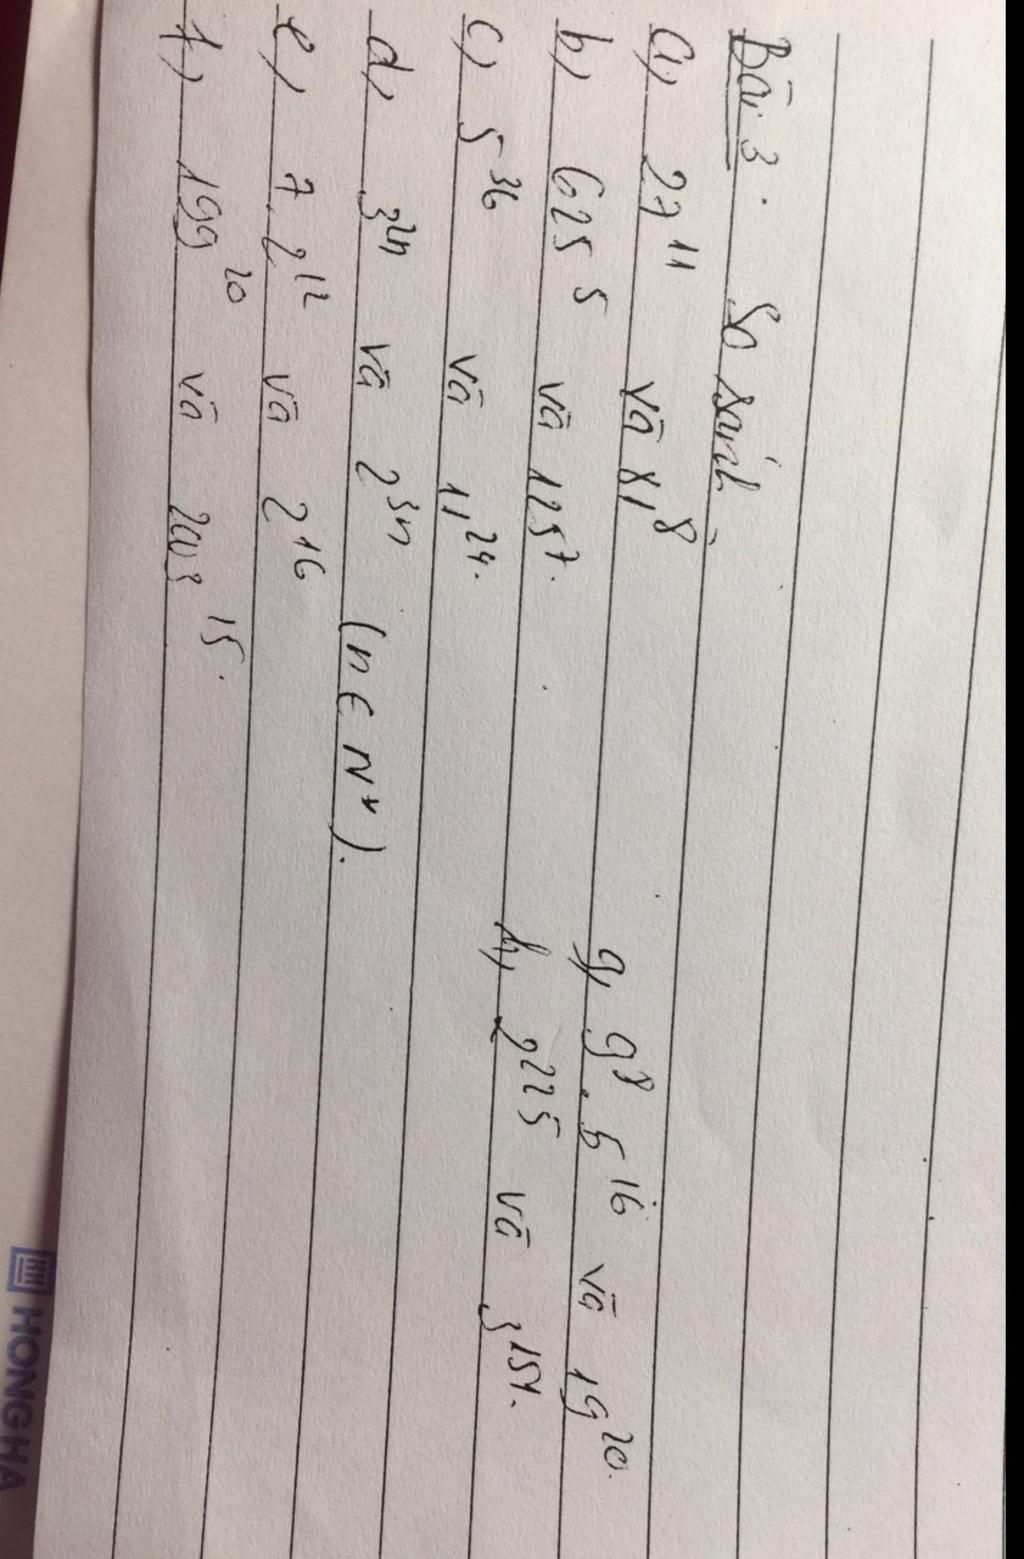 Bài 3. So sánh
a, 27¹¹ và 81⁸
b, 625⁵ và 125⁷.
c, 5³⁶ và 11²⁴.
d, 3²ⁿ và 2³ⁿ (n ∈ N*).
e, 7.2¹² và 2¹⁶
f, 199²⁰ và 2003¹⁵.
g, 9⁸.5¹⁶ và 19²⁰.
h, 2²²⁵ và 3¹⁵¹.
HONG HA